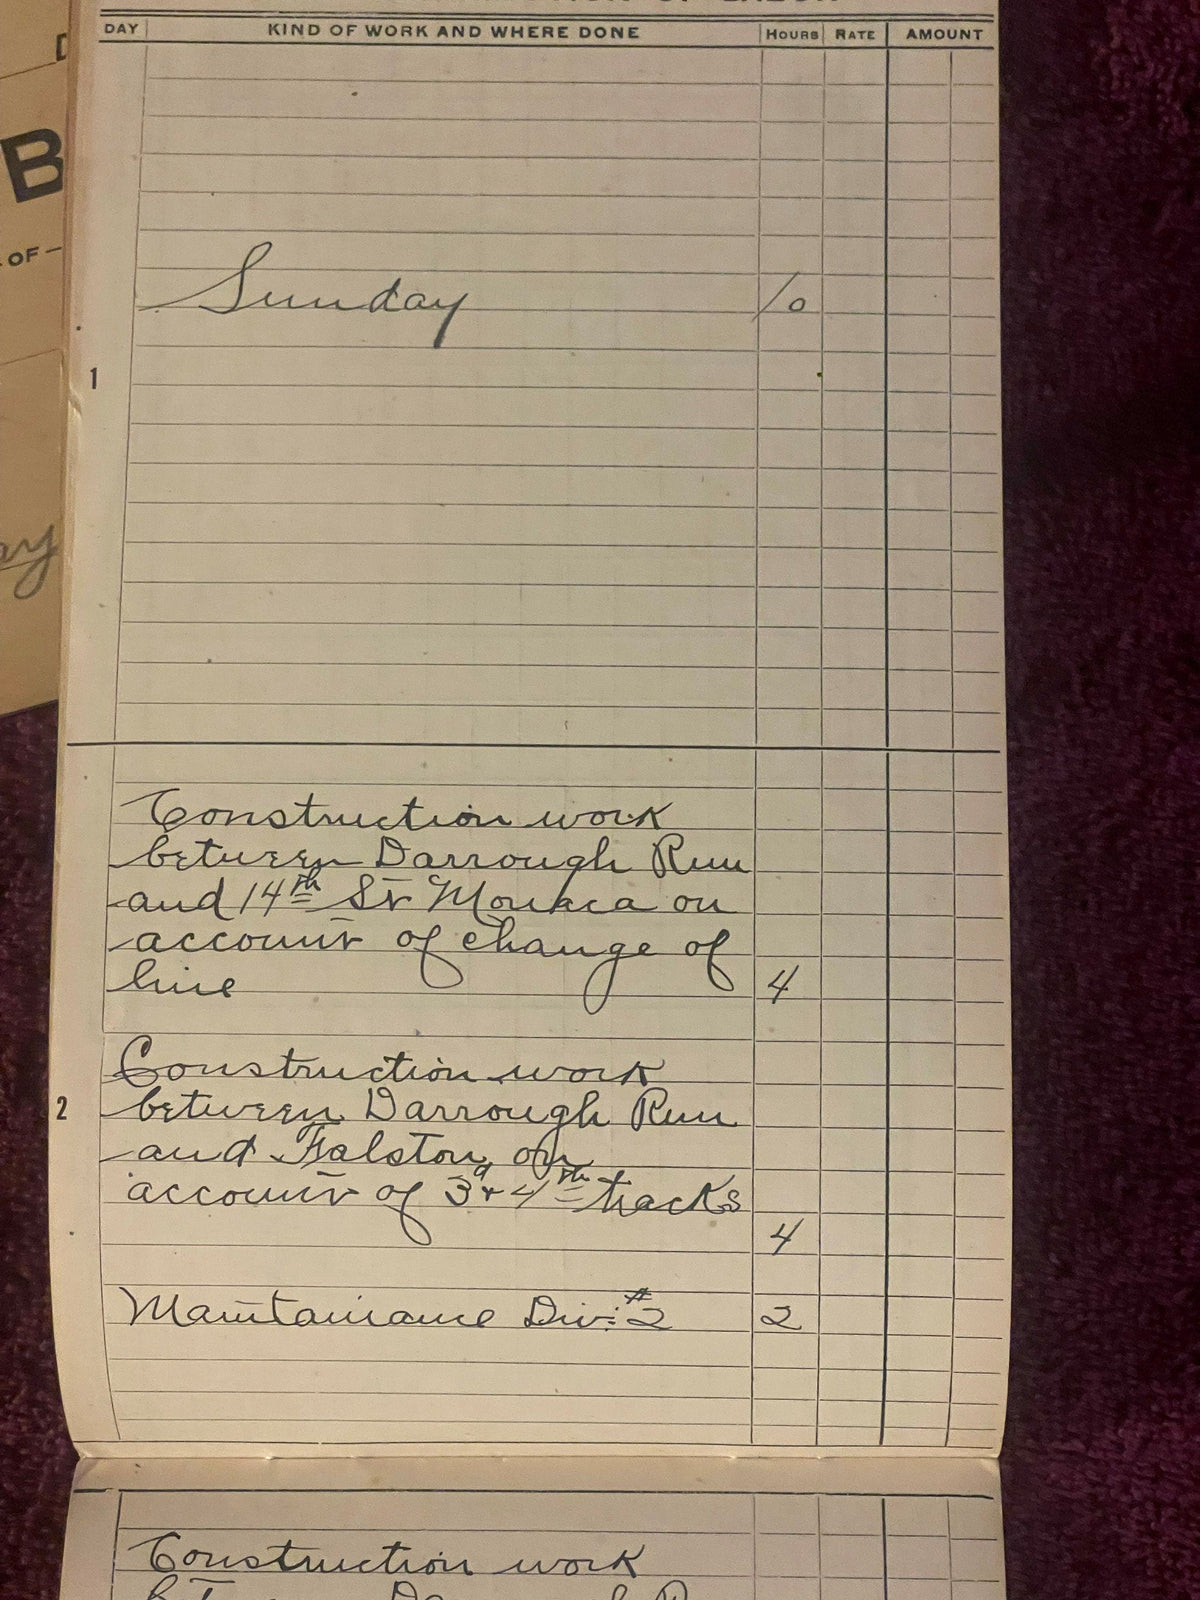 DAY KIND OF WORK AND WHERE DONE HOURS RATE AMOUNT
B
OF —
Sunday 10
1
ay
Construction work
between Darrough Run
and 14th St Monaca on
account of change of
line 4
Construction work
2 between Darrough Run
and Falston on
account of 3d & 4th tracks
4
Maintainance Div. #2 2
Construction work